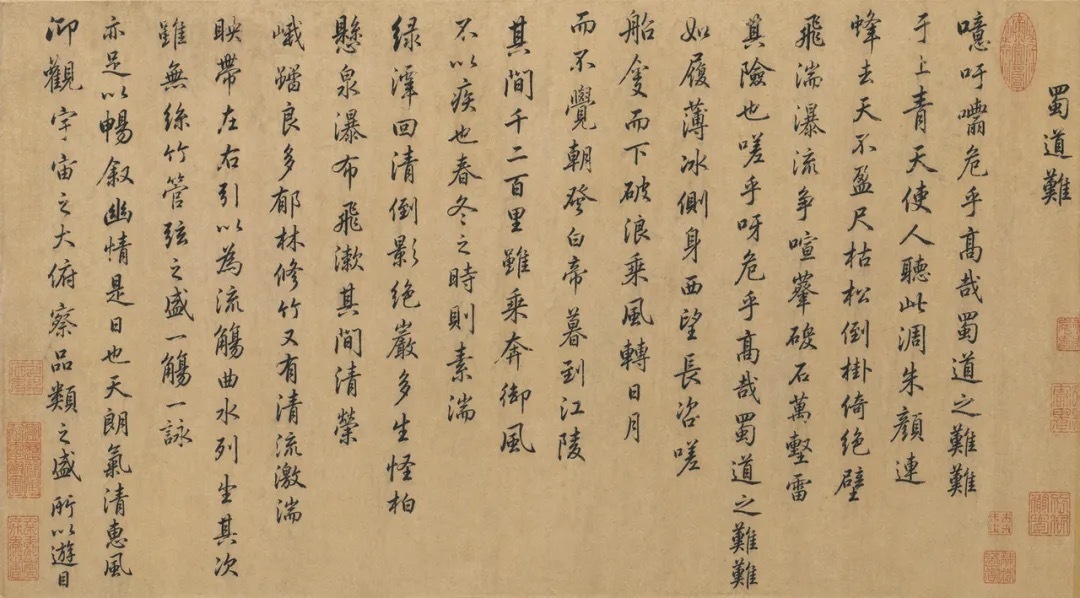 蜀道難
噫吁嚱危乎高哉蜀道之難難
于上青天使人聽此凋朱顏連
峰去天不盈尺枯松倒掛倚絶壁
飛湍瀑流爭喧砯石萬壑雷
其險也嗟乎呀危乎高哉蜀道之難難
如履薄冰側身西望長咨嗟
船而下破浪乘風轉日月
而不覺朝發白帝暮到江陵
其間千二百里雖乘奔御風
不以疾也春冬之時則素湍
緑潭回清倒影絶巖多生怪柏
懸泉瀑布飛漱其間清榮
峻良多郁林修竹又有清流激湍
映帶左右引以為流觴曲水列坐其次
雖無絲竹管弦之盛一觴一詠
亦足以暢叙幽情是日也天朗氣清惠風
仰觀宇宙之大俯察品類之盛所以遊目